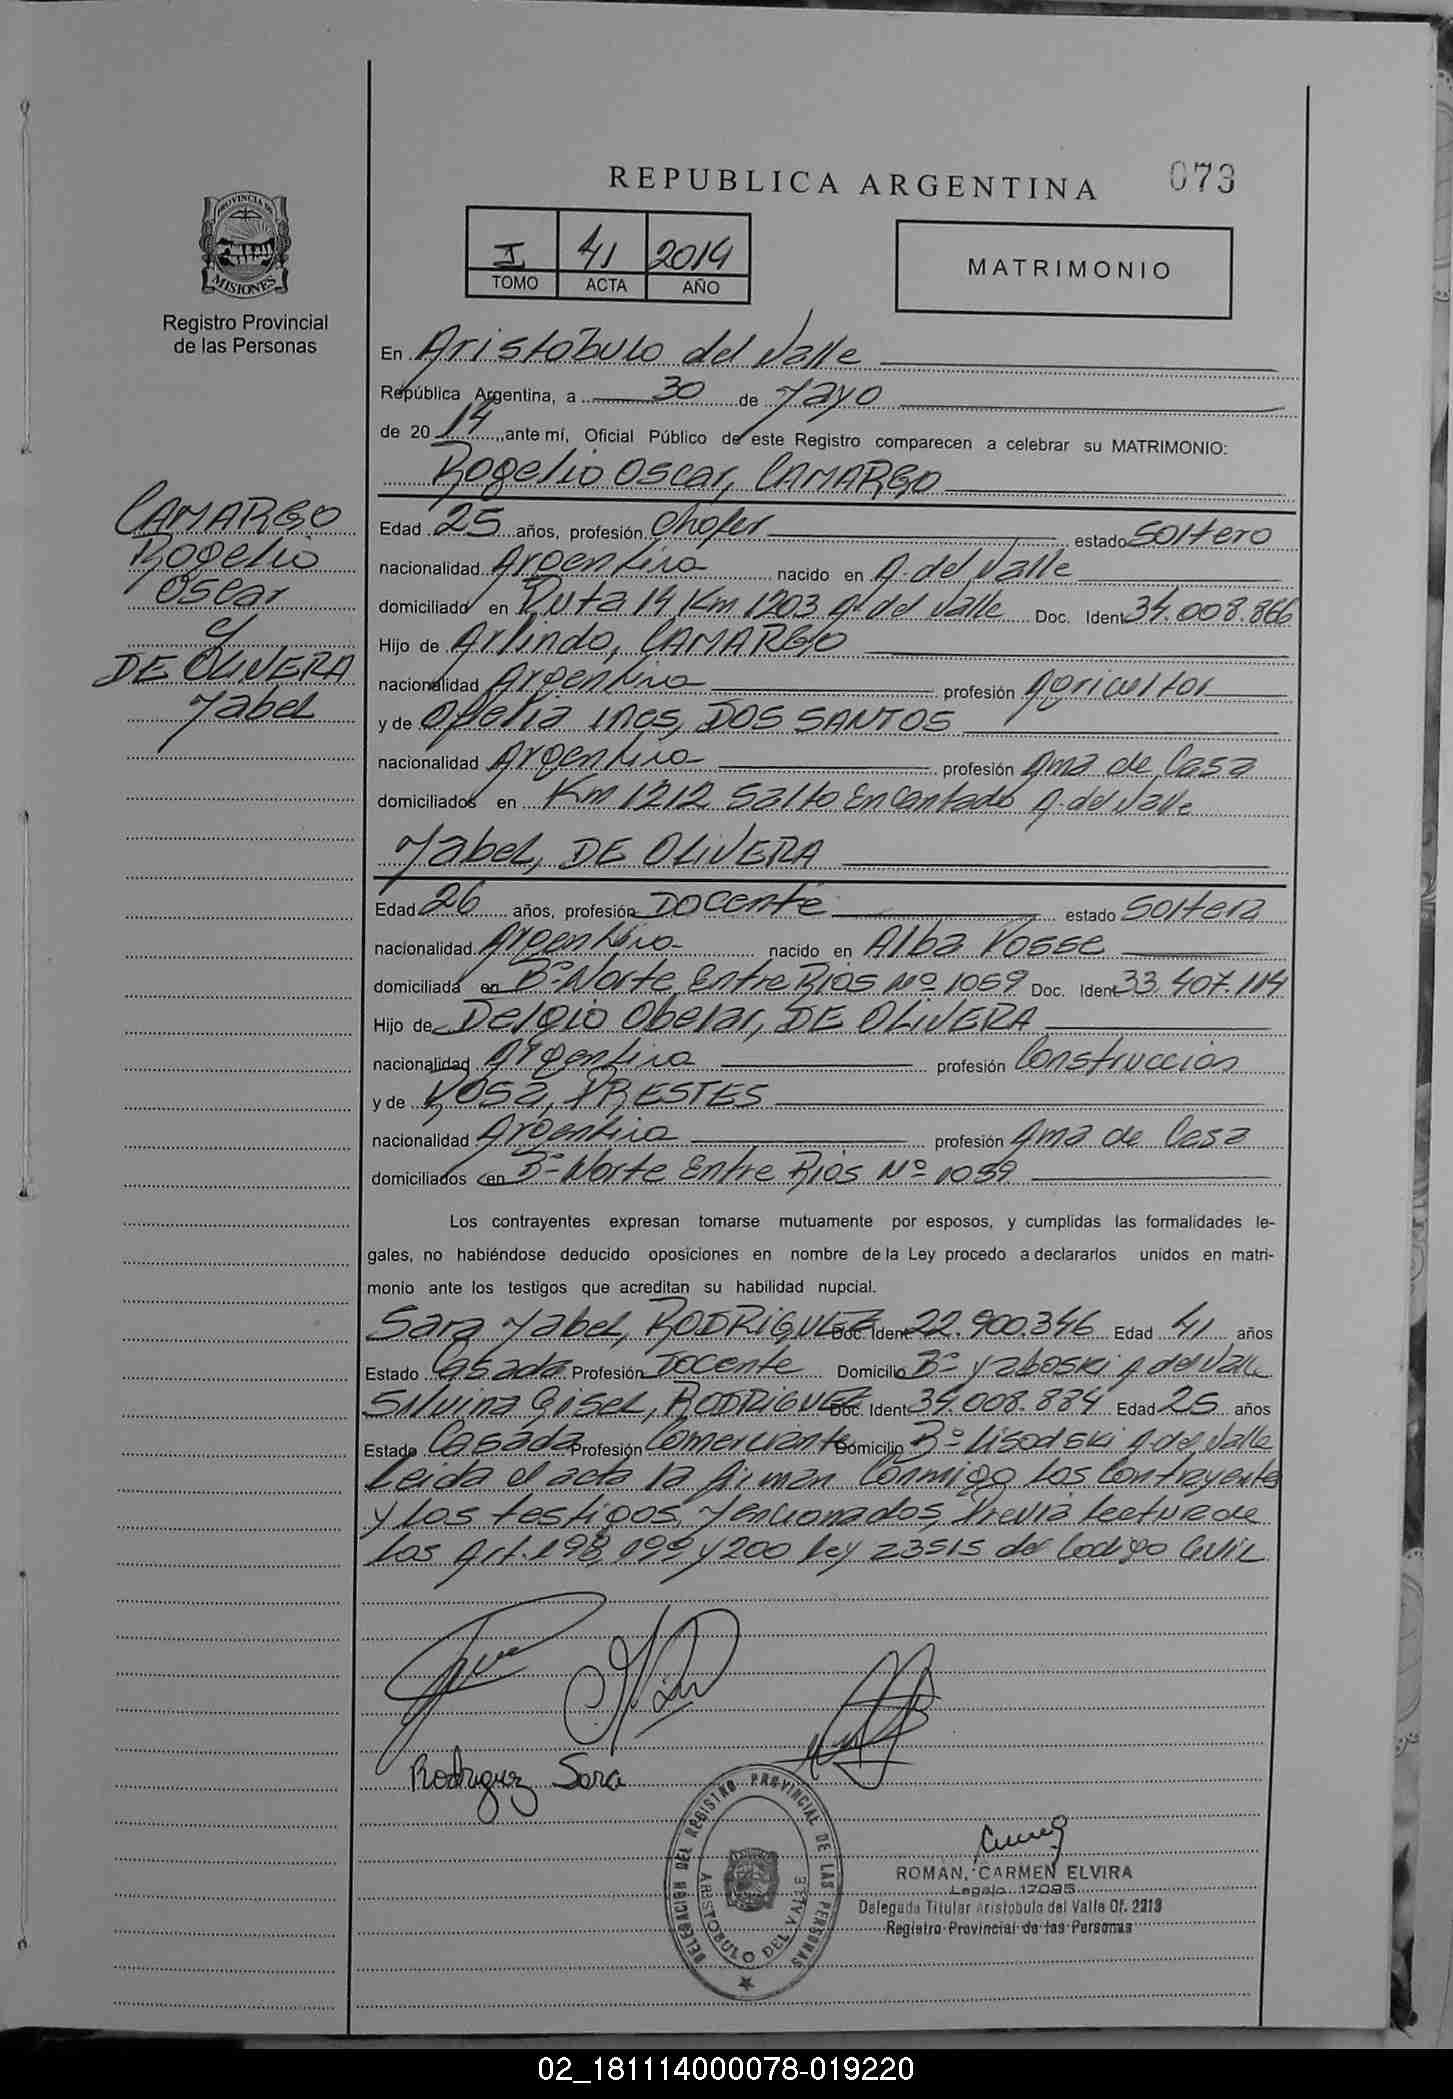 REPUBLICA ARGENTINA
073
I 41 2014
TOMO ACTA AÑO
MATRIMONIO
PROVINCIA DE
MISIONES
Registro Provincial
de las Personas
En Aristobulo del Valle
República Argentina, a 30 de Mayo
de 2014, ante mí, Oficial Público de este Registro comparecen a celebrar su MATRIMONIO:
Rogelio Oscar, CAMARGO
CAMARGO
Rogelio
Oscar
y
DE OLIVERA
Mabel
Edad 25 años, profesión Chofer estado Soltero
nacionalidad Argentina nacido en A. del Valle
domiciliado en Ruta 14 Km 1203 A. del Valle Doc. Ident 34.008.866
Hijo de Arlindo, CAMARGO
nacionalidad Argentina profesión Agricultor
y de Ofelia Ines, DOS SANTOS
nacionalidad Argentina profesión Ama de Casa
domiciliados en Km 1212 Salto Encantado A. del Valle
Mabel, DE OLIVERA
Edad 26 años, profesión Docente estado Soltera
nacionalidad Argentina nacido en Alba Posse
domiciliada en Bº Norte Entre Rios Nº 1059 Doc. Ident 33.407.114
Hijo de Delgio Oberar, DE OLIVERA
nacionalidad Argentina profesión Construccion
y de Rosa, PRESTES
nacionalidad Argentina profesión Ama de Casa
domiciliados en Bº Norte Entre Rios Nº 1059
Los contrayentes expresan tomarse mutuamente por esposos, y cumplidas las formalidades le-
gales, no habiéndose deducido oposiciones en nombre de la Ley procedo a declararlos unidos en matri-
monio ante los testigos que acreditan su habilidad nupcial.
Sara Mabel, RODRIGUEZ Doc. Ident 22.900.346 Edad 41 años
Estado Casada Profesión Docente Domicilio Bº Yaboski A. del Valle
Silvina Gisel, RODRIGUEZ Doc. Ident 34.008.884 Edad 25 años
Estado Casada Profesión Comerciante Domicilio Bº Lisodski A. del Valle
Leida el acta la firman Conmigo los Contrayentes
y los testigos Mencionados, Previa lectura de
los Art. 198, 199 y 200 Ley 23515 del Codigo Civil
Rodriguez Sara
DELEGACION DEL REGISTRO PROVINCIAL DE LAS PERSONAS
ARISTOBULO DEL VALLE
ROMAN, CARMEN ELVIRA
Legajo 17095
Delegada Titular Aristobulo del Valle Of. 2213
Registro Provincial de las Personas
02_181114000078-019220